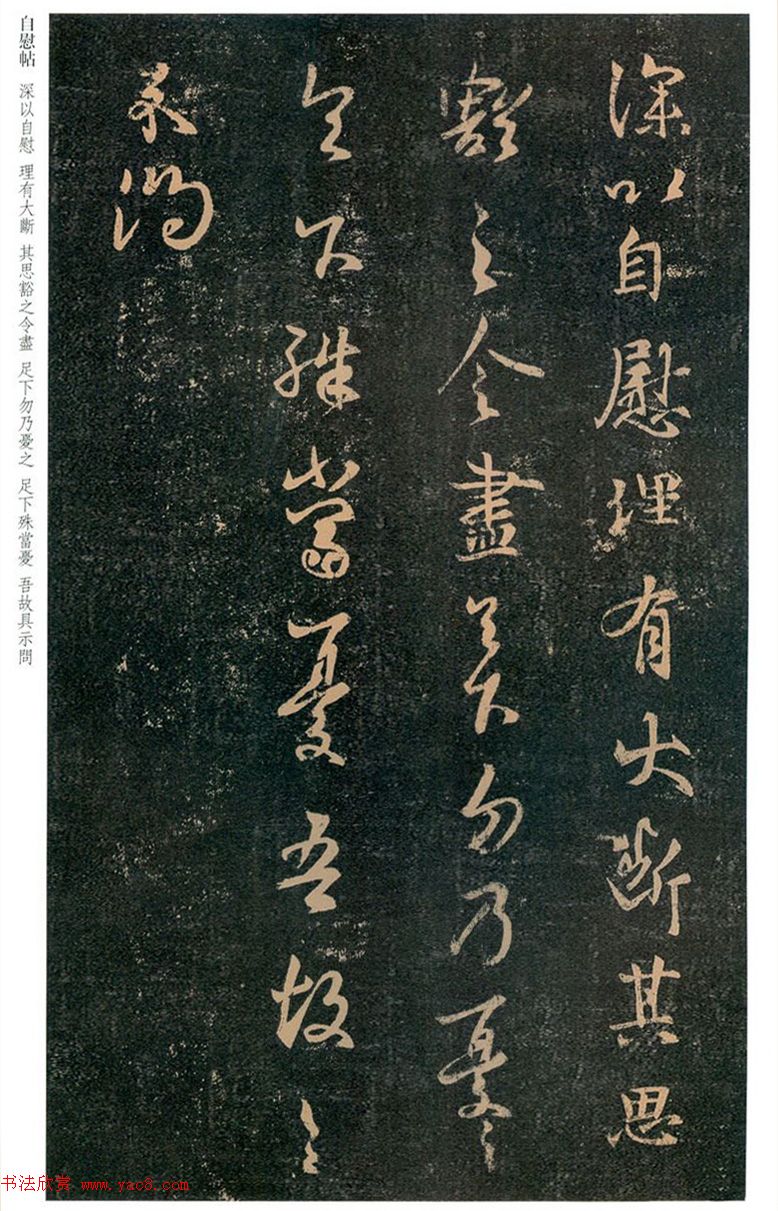 深以自慰理有大斷其思
豁之令盡足下勿乃憂之
足下殊當憂吾故具
示問
自慰帖 深以自慰 理有大斷 其思豁之令盡 足下勿乃憂之 足下殊當憂 吾故具示問
书法欣赏 www.yac8.com